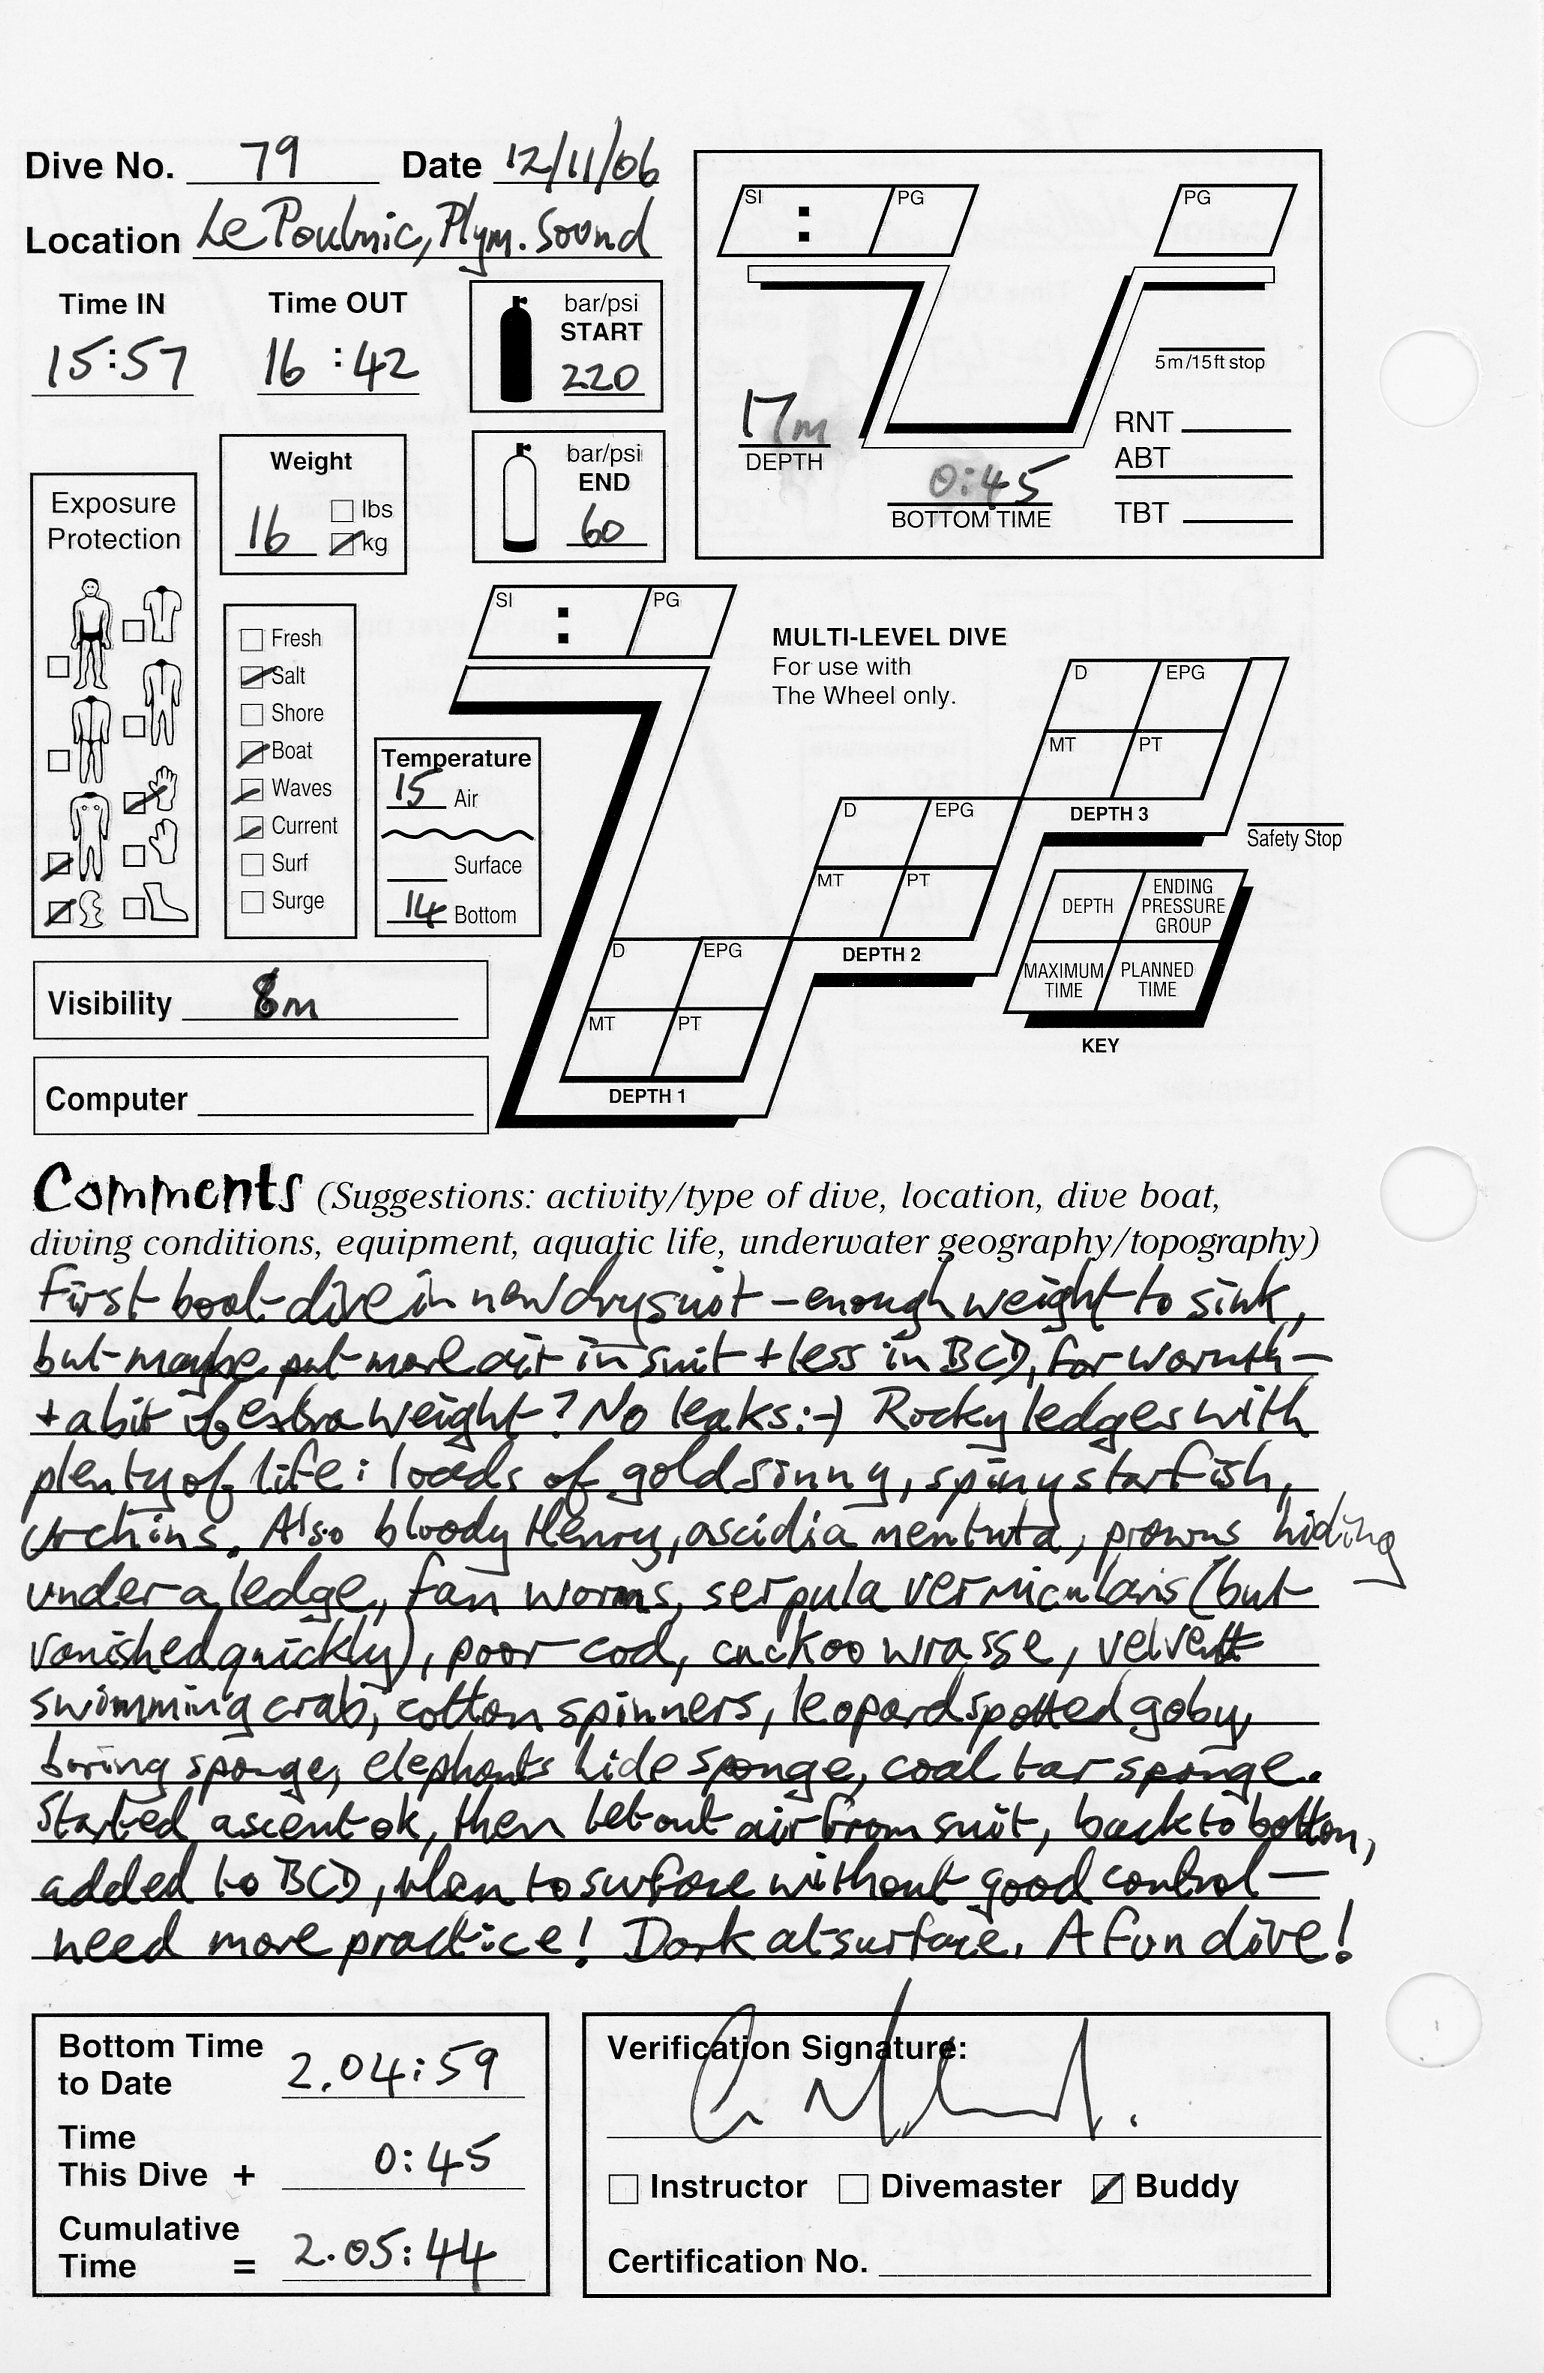 Dive No. 79 Date 12/11/06
Location Le Poulmic, Plym. Sound
Time IN Time OUT
15:57 16:42
bar/psi
START
220
bar/psi
END
60
Weight
16 lbs
kg
Exposure
Protection
Fresh
Salt
Shore
Boat
Waves
Current
Surf
Surge
Temperature
15 Air
Surface
14 Bottom
Visibility 8m
Computer
SI : PG
PG
5m/15ft stop
17m
DEPTH
0:45
BOTTOM TIME
RNT
ABT
TBT
SI : PG
MULTI-LEVEL DIVE
For use with
The Wheel only.
D EPG
MT PT
DEPTH 3
Safety Stop
D EPG
MT PT
DEPTH 2
D EPG
MT PT
DEPTH 1
DEPTH ENDING PRESSURE GROUP
MAXIMUM TIME PLANNED TIME
KEY
Comments (Suggestions: activity/type of dive, location, dive boat,
diving conditions, equipment, aquatic life, underwater geography/topography)
First boat dive in new drysuit - enough weight to sink,
but maybe put more air in suit + less in BCD, for warmth -
+ a bit of extra weight? No leaks :-) Rocky ledges with
plenty of life: loads of goldsinny, spiny starfish,
urchins. Also bloody Henry, ascidia mentula, prawns hiding
under a ledge, fan worms, serpula vermicularis (but
vanished quickly), poor cod, cuckoo wrasse, velvet
swimming crab, cotton spinners, leopard spotted goby,
boring sponge, elephants hide sponge, coal tar sponge.
Started ascent ok, then let out air from suit, back to bottom,
added to BCD, then to surface without good control -
need more practice! Dark at surface. A fun dive!
Bottom Time
to Date 2.04:59
Time
This Dive + 0:45
Cumulative
Time = 2.05:44
Verification Signature:
Instructor Divemaster Buddy
Certification No.